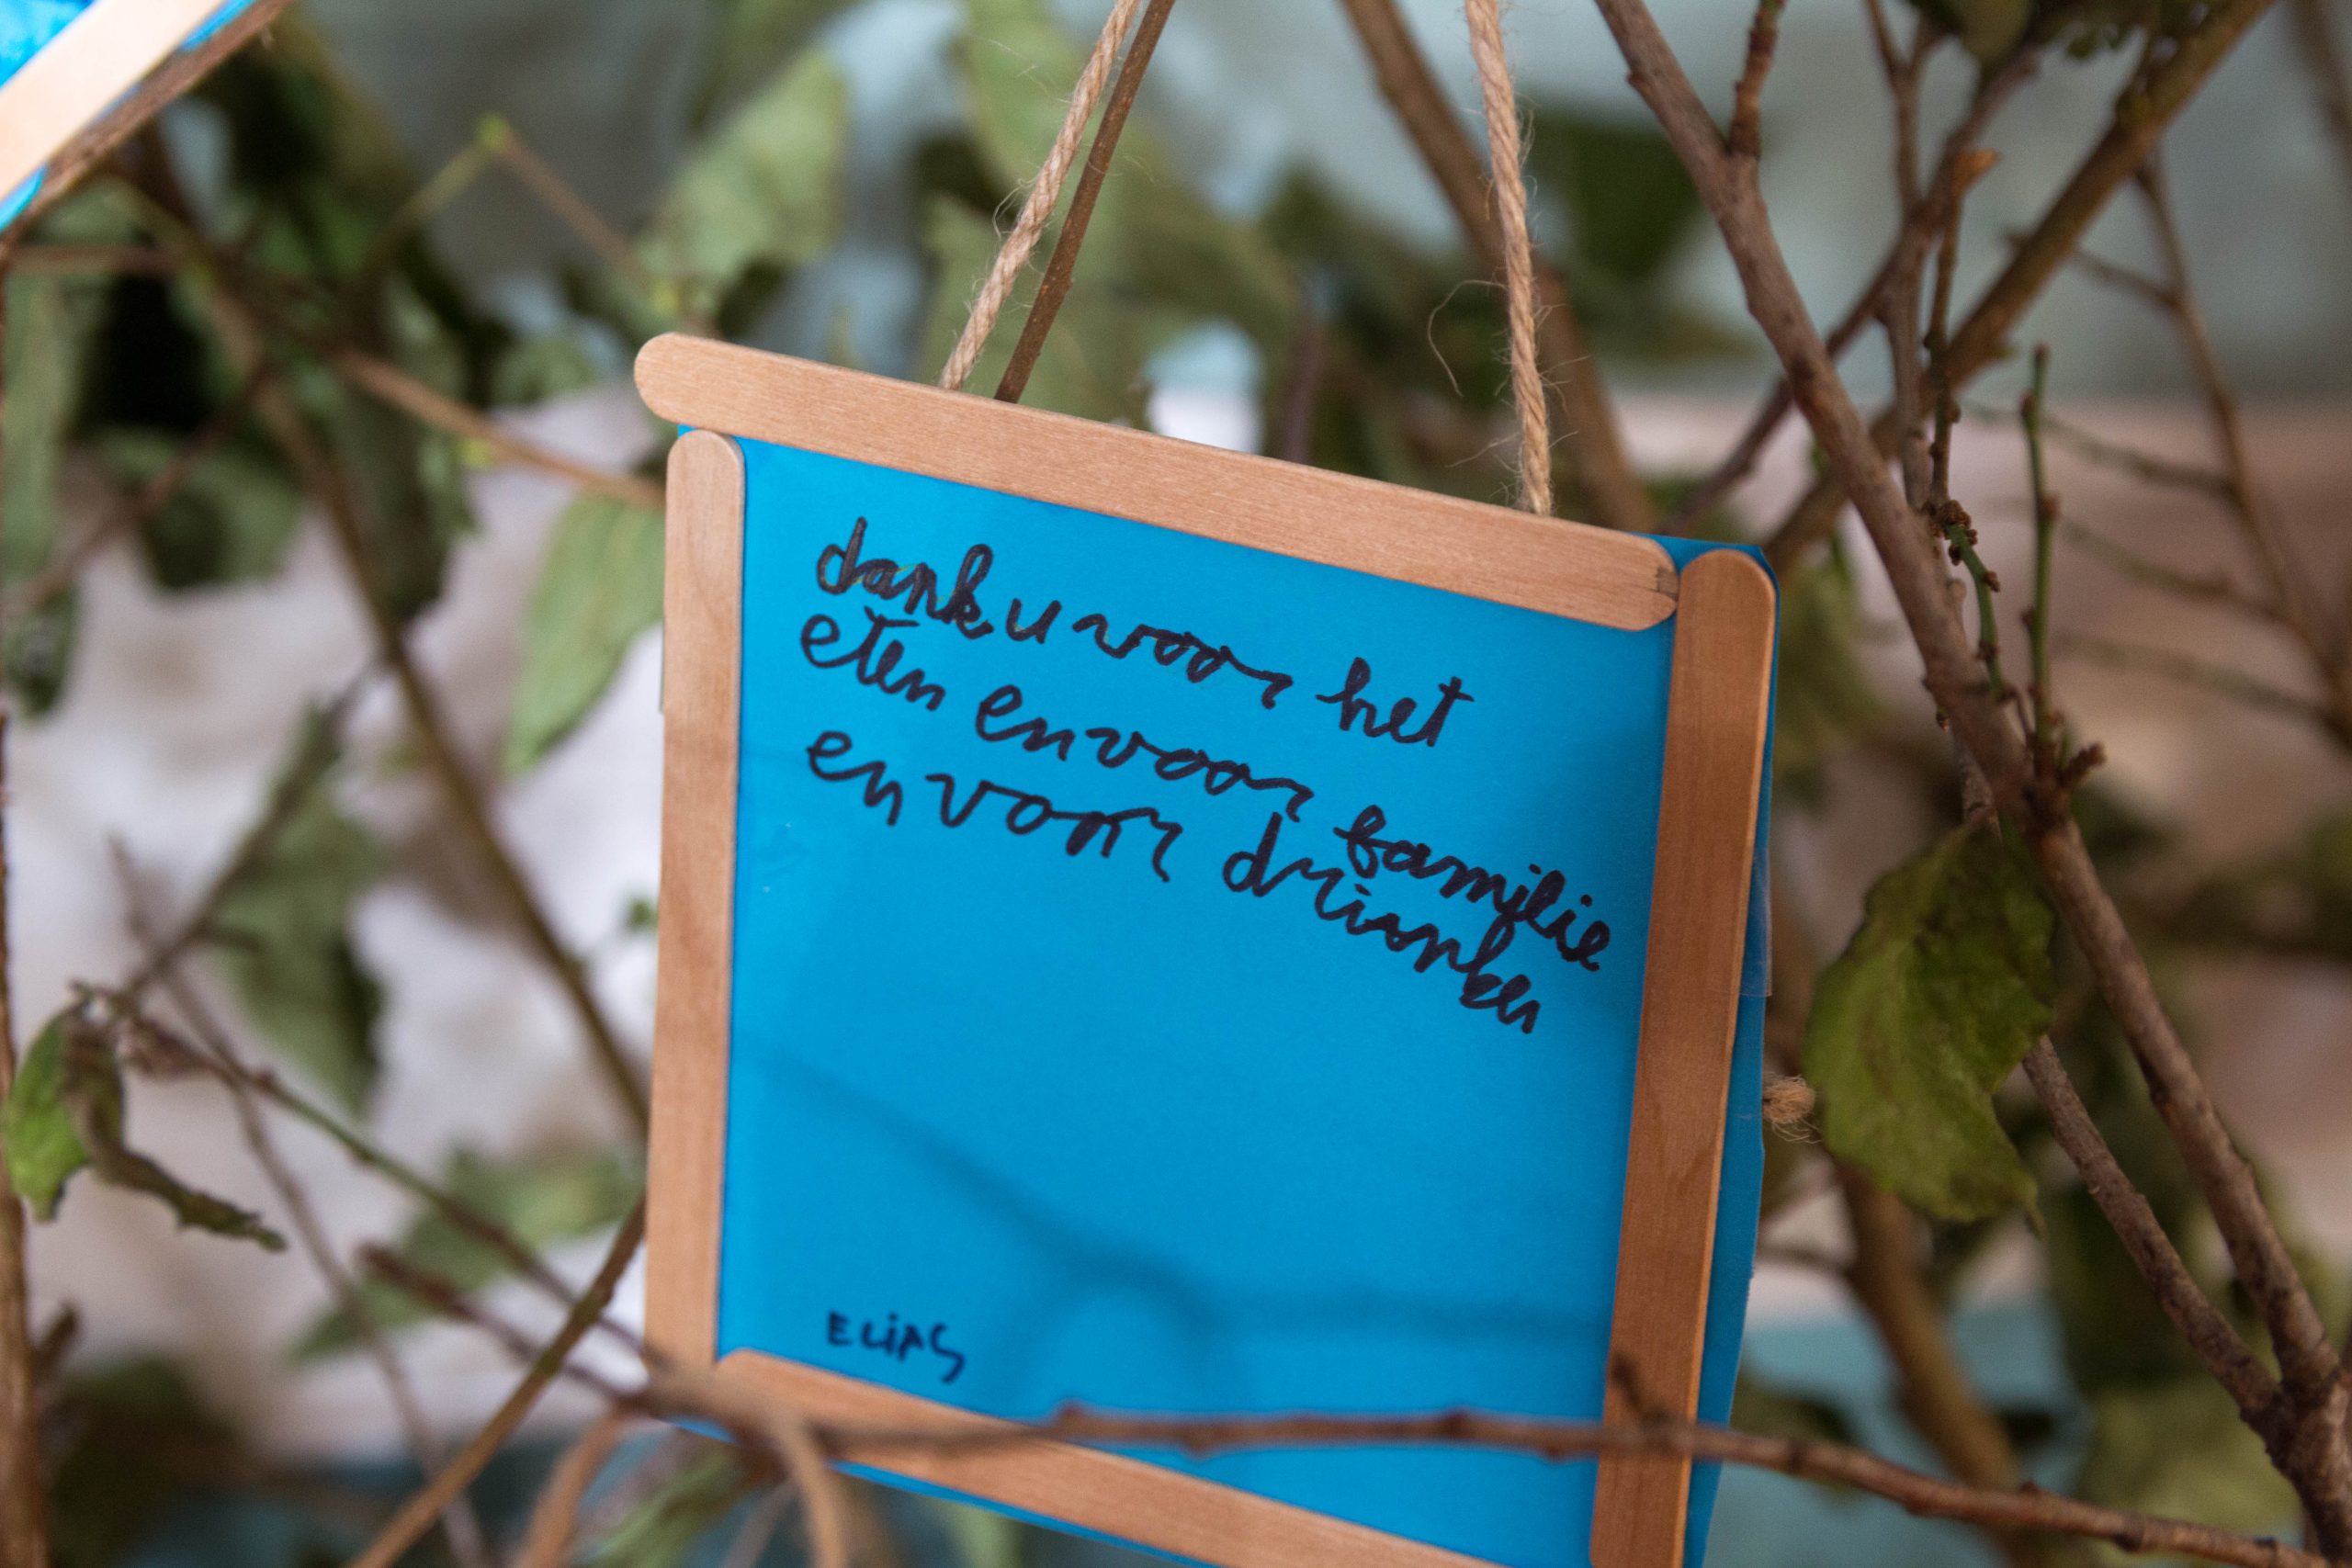 dank u voor het
eten en voor familie
en voor drinken
ELiAS